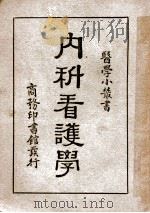 醫學小叢書
內科看護學
商務印書館發行